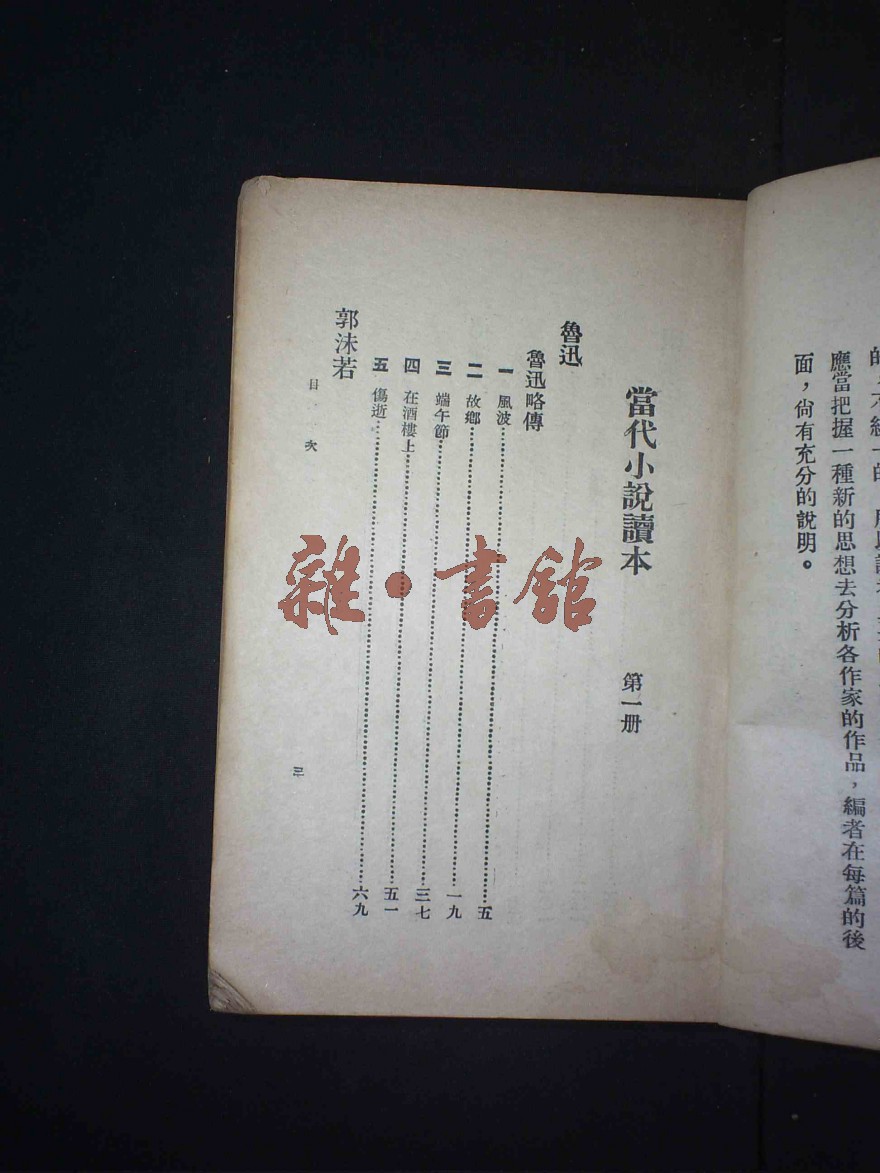 應當把握一種新的思想去分析各作家的作品，編者在每篇的後
面，尙有充分的說明。
當代小說讀本 第一册
魯迅
魯迅略傳
一 風波……五
二 故鄉……一九
三 端午節……三七
四 在酒樓上……五一
五 傷逝……六九
郭沫若
目次 三
雜·書館